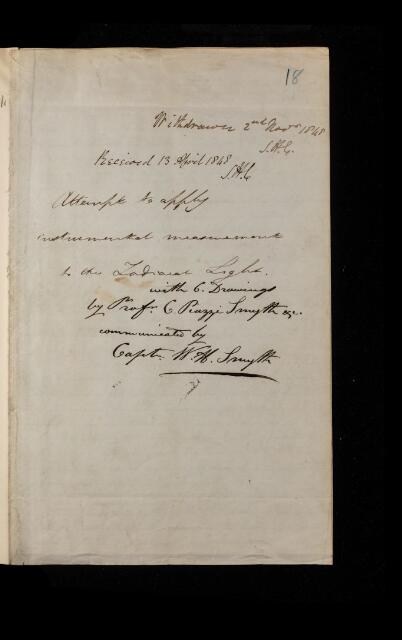 18
Withdrawn 2nd Novr 1848
S.H.C.
Received 13 April 1848
S.H.C
Attempt to apply
instrumental measurement
to the Zodiacal Light.
with 6. Drawings
by Profr. C Piazzi Smyth &c.
communicated by
Captn. W. H. Smyth